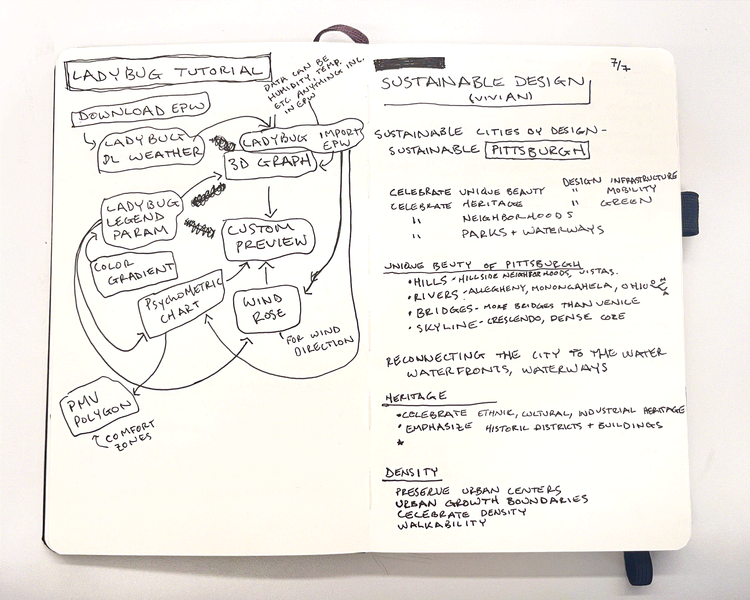 LADYBUG TUTORIAL
DOWNLOAD EPW
LADYBUG
DL WEATHER
DATA CAN BE
HUMIDITY, TEMP.
ETC. ANYTHING INC.
IN EPW
LADYBUG IMPORT
EPW
3D GRAPH
LADYBUG
LEGEND
PARAM
COLOR
GRADIENT
CUSTOM
PREVIEW
PSYCHOMETRIC
CHART
WIND
ROSE
FOR WIND
DIRECTION
PMV
POLYGON
COMFORT
ZONES
7/7
SUSTAINABLE DESIGN
(VIVIAN)
SUSTAINABLE CITIES BY DESIGN -
SUSTAINABLE PITTSBURGH
CELEBRATE UNIQUE BEAUTY
CELEBRATE HERITAGE
" NEIGHBORHOODS
" PARKS + WATERWAYS
DESIGN INFRASTRUCTURE
" MOBILITY
" GREEN
UNIQUE BEUTY OF PITTSBURGH
• HILLS - HILLSIDE NEIGHBORHOODS, VISTAS.
• RIVERS - ALLEGHENY, MONONGAHELA, OHIO
• BRIDGES - MORE BRIDGES THAN VENICE
• SKYLINE - CRESCENDO, DENSE CORE
RECONNECTING THE CITY TO THE WATER
WATERFRONTS, WATERWAYS
HERITAGE
• CELEBRATE ETHNIC, CULTURAL, INDUSTRIAL HERITAGE
• EMPHASIZE HISTORIC DISTRICTS + BUILDINGS
*
DENSITY
PRESERVE URBAN CENTERS
URBAN GROWTH BOUNDARIES
CELEBRATE DENSITY
WALKABILITY